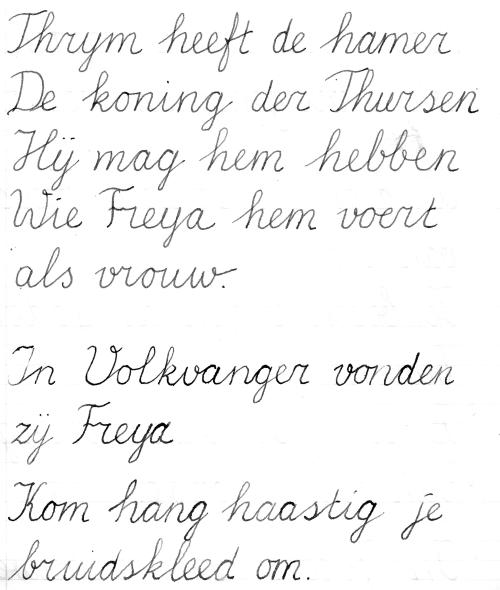 Thrym heeft de hamer
De koning der Thursen
Hij mag hem hebben
Wie Freya hem voert
als vrouw.
In Volkvanger vonden
zij Freya
Kom hang haastig je
bruidskleed om.